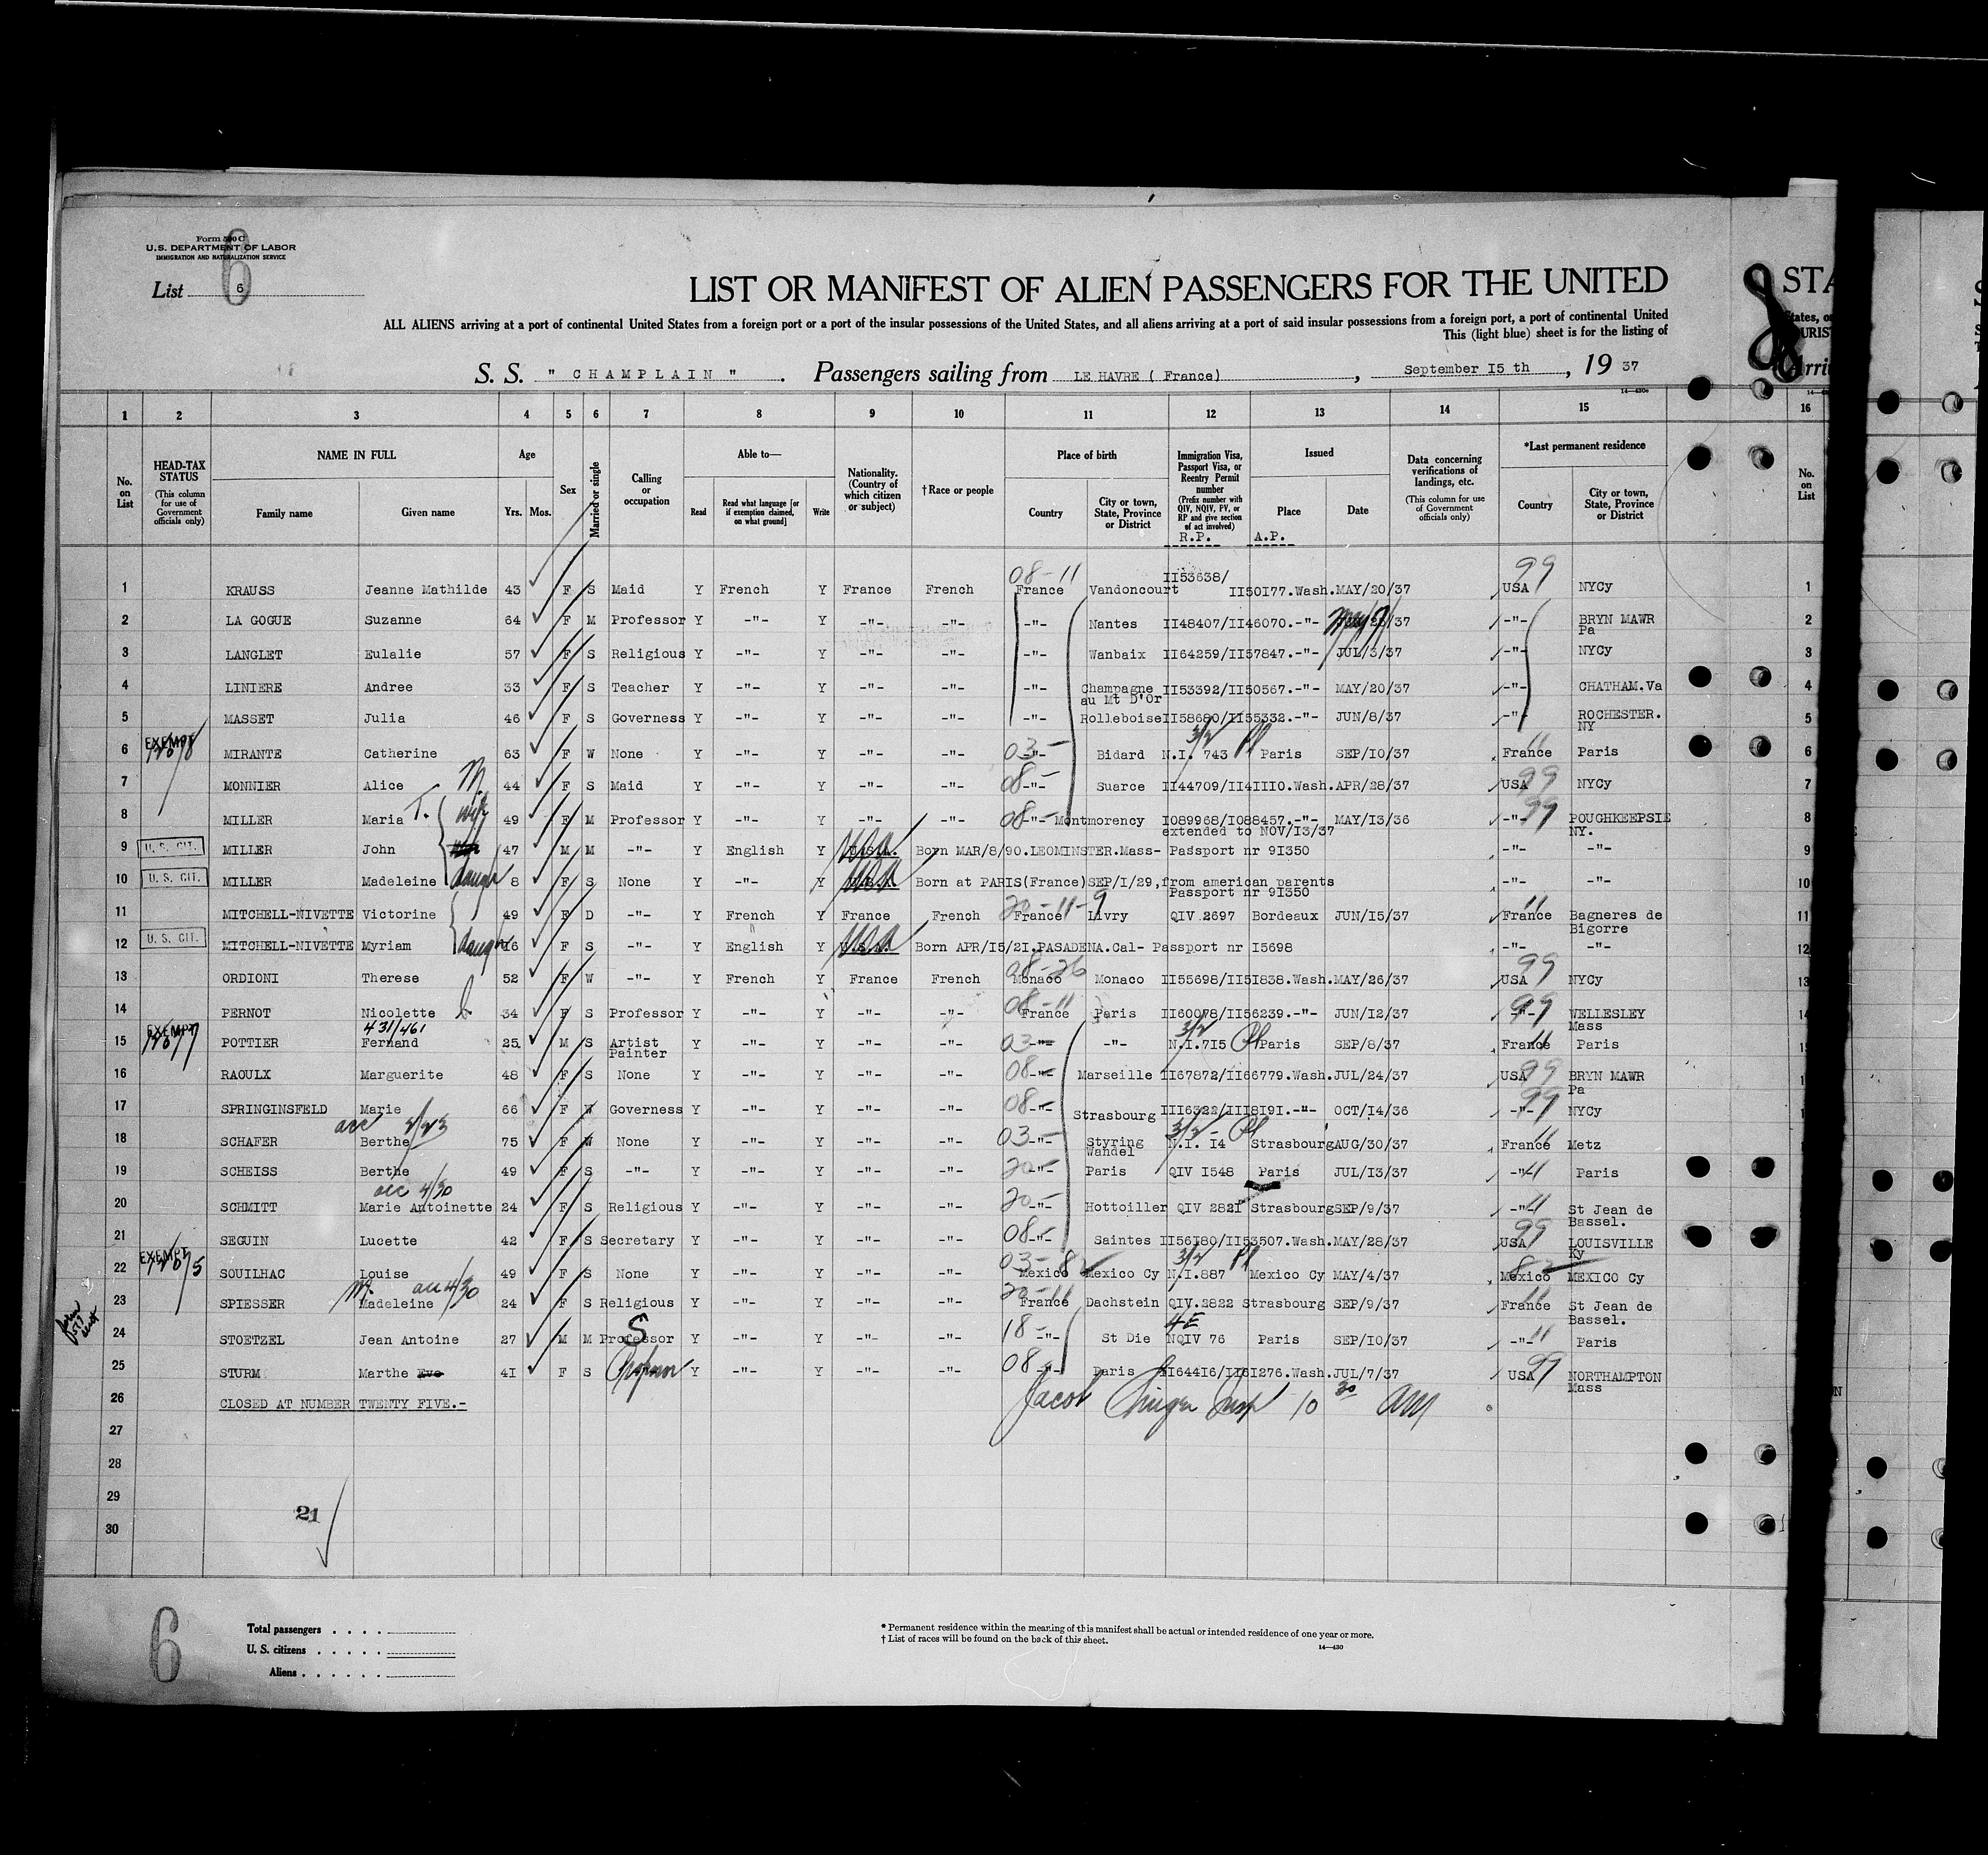 Form 500 C
U.S. DEPARTMENT OF LABOR
IMMIGRATION AND NATURALIZATION SERVICE
List 6
6
LIST OR MANIFEST OF ALIEN PASSENGERS FOR THE UNITED
STA
ALL ALIENS arriving at a port of continental United States from a foreign port or a port of the insular possessions of the United States, and all aliens arriving at a port of said insular possessions from a foreign port, a port of continental United
This (light blue) sheet is for the listing of
S. S. " CHAMPLAIN " . Passengers sailing from LE HAVRE ( France) , September I5 th , 19 37
14—430c
1 2 3 4 5 6 7 8 9 10 11 12 13 14 15 16
No. on List
HEAD-TAX STATUS (This column for use of Government officials only)
NAME IN FULL
Family name
Given name
Age
Yrs. Mos.
Sex
Married or single
Calling or occupation
Able to—
Read
Read what language [or if exemption claimed, on what ground]
Write
Nationality. (Country of which citizen or subject)
†Race or people
Place of birth
Country
City or town, State, Province or District
Immigration Visa, Passport Visa, or Reentry Permit number (Prefix number with QIV, NQIV, PV, or RP and give section of act involved)
R.P.
Issued
Place
Date
A.P.
Data concerning verifications of landings, etc. (This column for use of Government officials only)
*Last permanent residence
Country
City or town, State, Province or District
No. on List
1 KRAUSS Jeanne Mathilde 43 F S Maid Y French Y France French 08-11 France Vandoncourt II53638/ II50I77.Wash. MAY/20/37 99 USA NYCy 1
2 LA GOGUE Suzanne 64 F M Professor Y -"- Y -"- -"- -"- Nantes II48407/II46070.-"- /37 -"- BRYN MAWR Pa 2
3 LANGLET Eulalie 57 F S Religious Y -"- Y -"- -"- -"- Wanbaix II64259/II57847.-"- JUL/3/37 -"- NYCy 3
4 LINIERE Andree 33 F S Teacher Y -"- Y -"- -"- -"- Champagne au Mt D'Or II53392/II50567.-"- MAY/20/37 -"- CHATHAM.Va 4
5 MASSET Julia 46 F S Governess Y -"- Y -"- -"- -"- Rolleboise II58680/II55332.-"- JUN/8/37 -"- ROCHESTER. NY 5
6 EXEMPT MIRANTE Catherine 63 F W None Y -"- Y -"- -"- 03- -"- Bidard N.I. 743 3/2 Pl Paris SEP/I0/37 France 11 Paris 6
7 MONNIER Alice M. 44 F S Maid Y -"- Y -"- -"- 08- -"- Suarce II44709/II4III0.Wash. APR/28/37 USA 99 NYCy 7
8 MILLER Maria T. wife 49 F M Professor Y -"- Y -"- -"- 08- -"- Montmorency I089968/I088457.-"- MAY/I3/36 -"- 99 POUGHKEEPSIE NY. 8
extended to NOV/I3/37
9 U. S. CIT. MILLER John 47 M M -"- Y English Y USA Born MAR/8/90.LEOMINSTER.Mass- Passport nr 9I350 -"- -"- 9
10 U. S. CIT. MILLER Madeleine daugh 8 F S None Y -"- Y USA Born at PARIS(France)SEP/I/29,from american parents -"- -"- 10
Passport nr 9I350
11 MITCHELL-NIVETTE Victorine 49 F D -"- Y French Y France French 20-11-9 France Livry QIV 2697 Bordeaux JUN/I5/37 11 France Bagneres de Bigorre 11
12 U. S. CIT. MITCHELL-NIVETTE Myriam daugh I6 F S -"- Y English Y USA Born APR/I5/2I.PASADENA.Cal- Passport nr I5698 -"- -"- 12
13 ORDIONI Therese 52 F W -"- Y French Y France French 08-26 Monaco Monaco II55698/II5I838.Wash. MAY/26/37 99 USA NYCy 13
14 PERNOT Nicolette 34 F S Professor Y -"- Y -"- -"- 08-11 France Paris II60078/II56239.-"- JUN/I2/37 99 -"- WELLESLEY Mass 14
431/461
15 EXEMPT POTTIER Fernand 25 M S Artist Painter Y -"- Y -"- -"- 03 -"- -"- N.I.7I5 3/2 Pl Paris SEP/8/37 France 11 Paris
16 RAOULX Marguerite 48 F S None Y -"- Y -"- -"- 08 -"- Marseille II67872/II66779.Wash. JUL/24/37 USA 99 BRYN MAWR Pa
17 SPRINGINSFELD Marie 66 F W Governess Y -"- Y -"- -"- 08 -"- Strasbourg III6322/III8I9I.-"- OCT/I4/36 -"- 99 NYCy
18 SCHAFER Berthe 75 F W None Y -"- Y -"- -"- 03 -"- Styring Wandel N.I. I4 3/2 - Pl Strasbourg AUG/30/37 France 11 Metz
19 SCHEISS Berthe 49 F S -"- Y -"- Y -"- -"- 20 -"- Paris QIV I548 Paris JUL/I3/37 -"- 11 Paris
acc 4/30
20 SCHMITT Marie Antoinette 24 F S Religious Y -"- Y -"- -"- 20- -"- Hottoiller QIV 282I Strasbourg SEP/9/37 -"- 11 St Jean de Bassel.
21 SEGUIN Lucette 42 F S Secretary Y -"- Y -"- -"- 08 -"- Saintes II56I80/II53507.Wash. MAY/28/37 99 USA LOUISVILLE Ky
22 EXEMPT SOUILHAC Louise 49 F S None Y -"- Y -"- -"- 03-82 Mexico Mexico Cy N.I.887 3/2 Pl Mexico Cy MAY/4/37 82 Mexico MEXICO Cy
M. acc 4/30
23 SPIESSER Madeleine 24 F S Religious Y -"- Y -"- -"- 20-11 France Dachstein QIV.2822 Strasbourg SEP/9/37 11 France St Jean de Bassel.
24 STOETZEL Jean Antoine 27 M M Professor S Y -"- Y -"- -"- 18- -"- St Die 4E NQIV 76 Paris SEP/I0/37 -"- 11 Paris
25 STURM Marthe Eve 4I F S Professor Y -"- Y -"- -"- 08 -"- Paris II644I6/II6I276.Wash. JUL/7/37 USA 99 NORTHAMPTON Mass
26 CLOSED AT NUMBER TWENTY FIVE.-
Jacob Insp 10 30 AM
27
28
29
30
21
6
Total passengers . . . .
U. S. citizens . . . . .
Aliens . . . . . .
* Permanent residence within the meaning of this manifest shall be actual or intended residence of one year or more.
† List of races will be found on the back of this sheet.
14—430